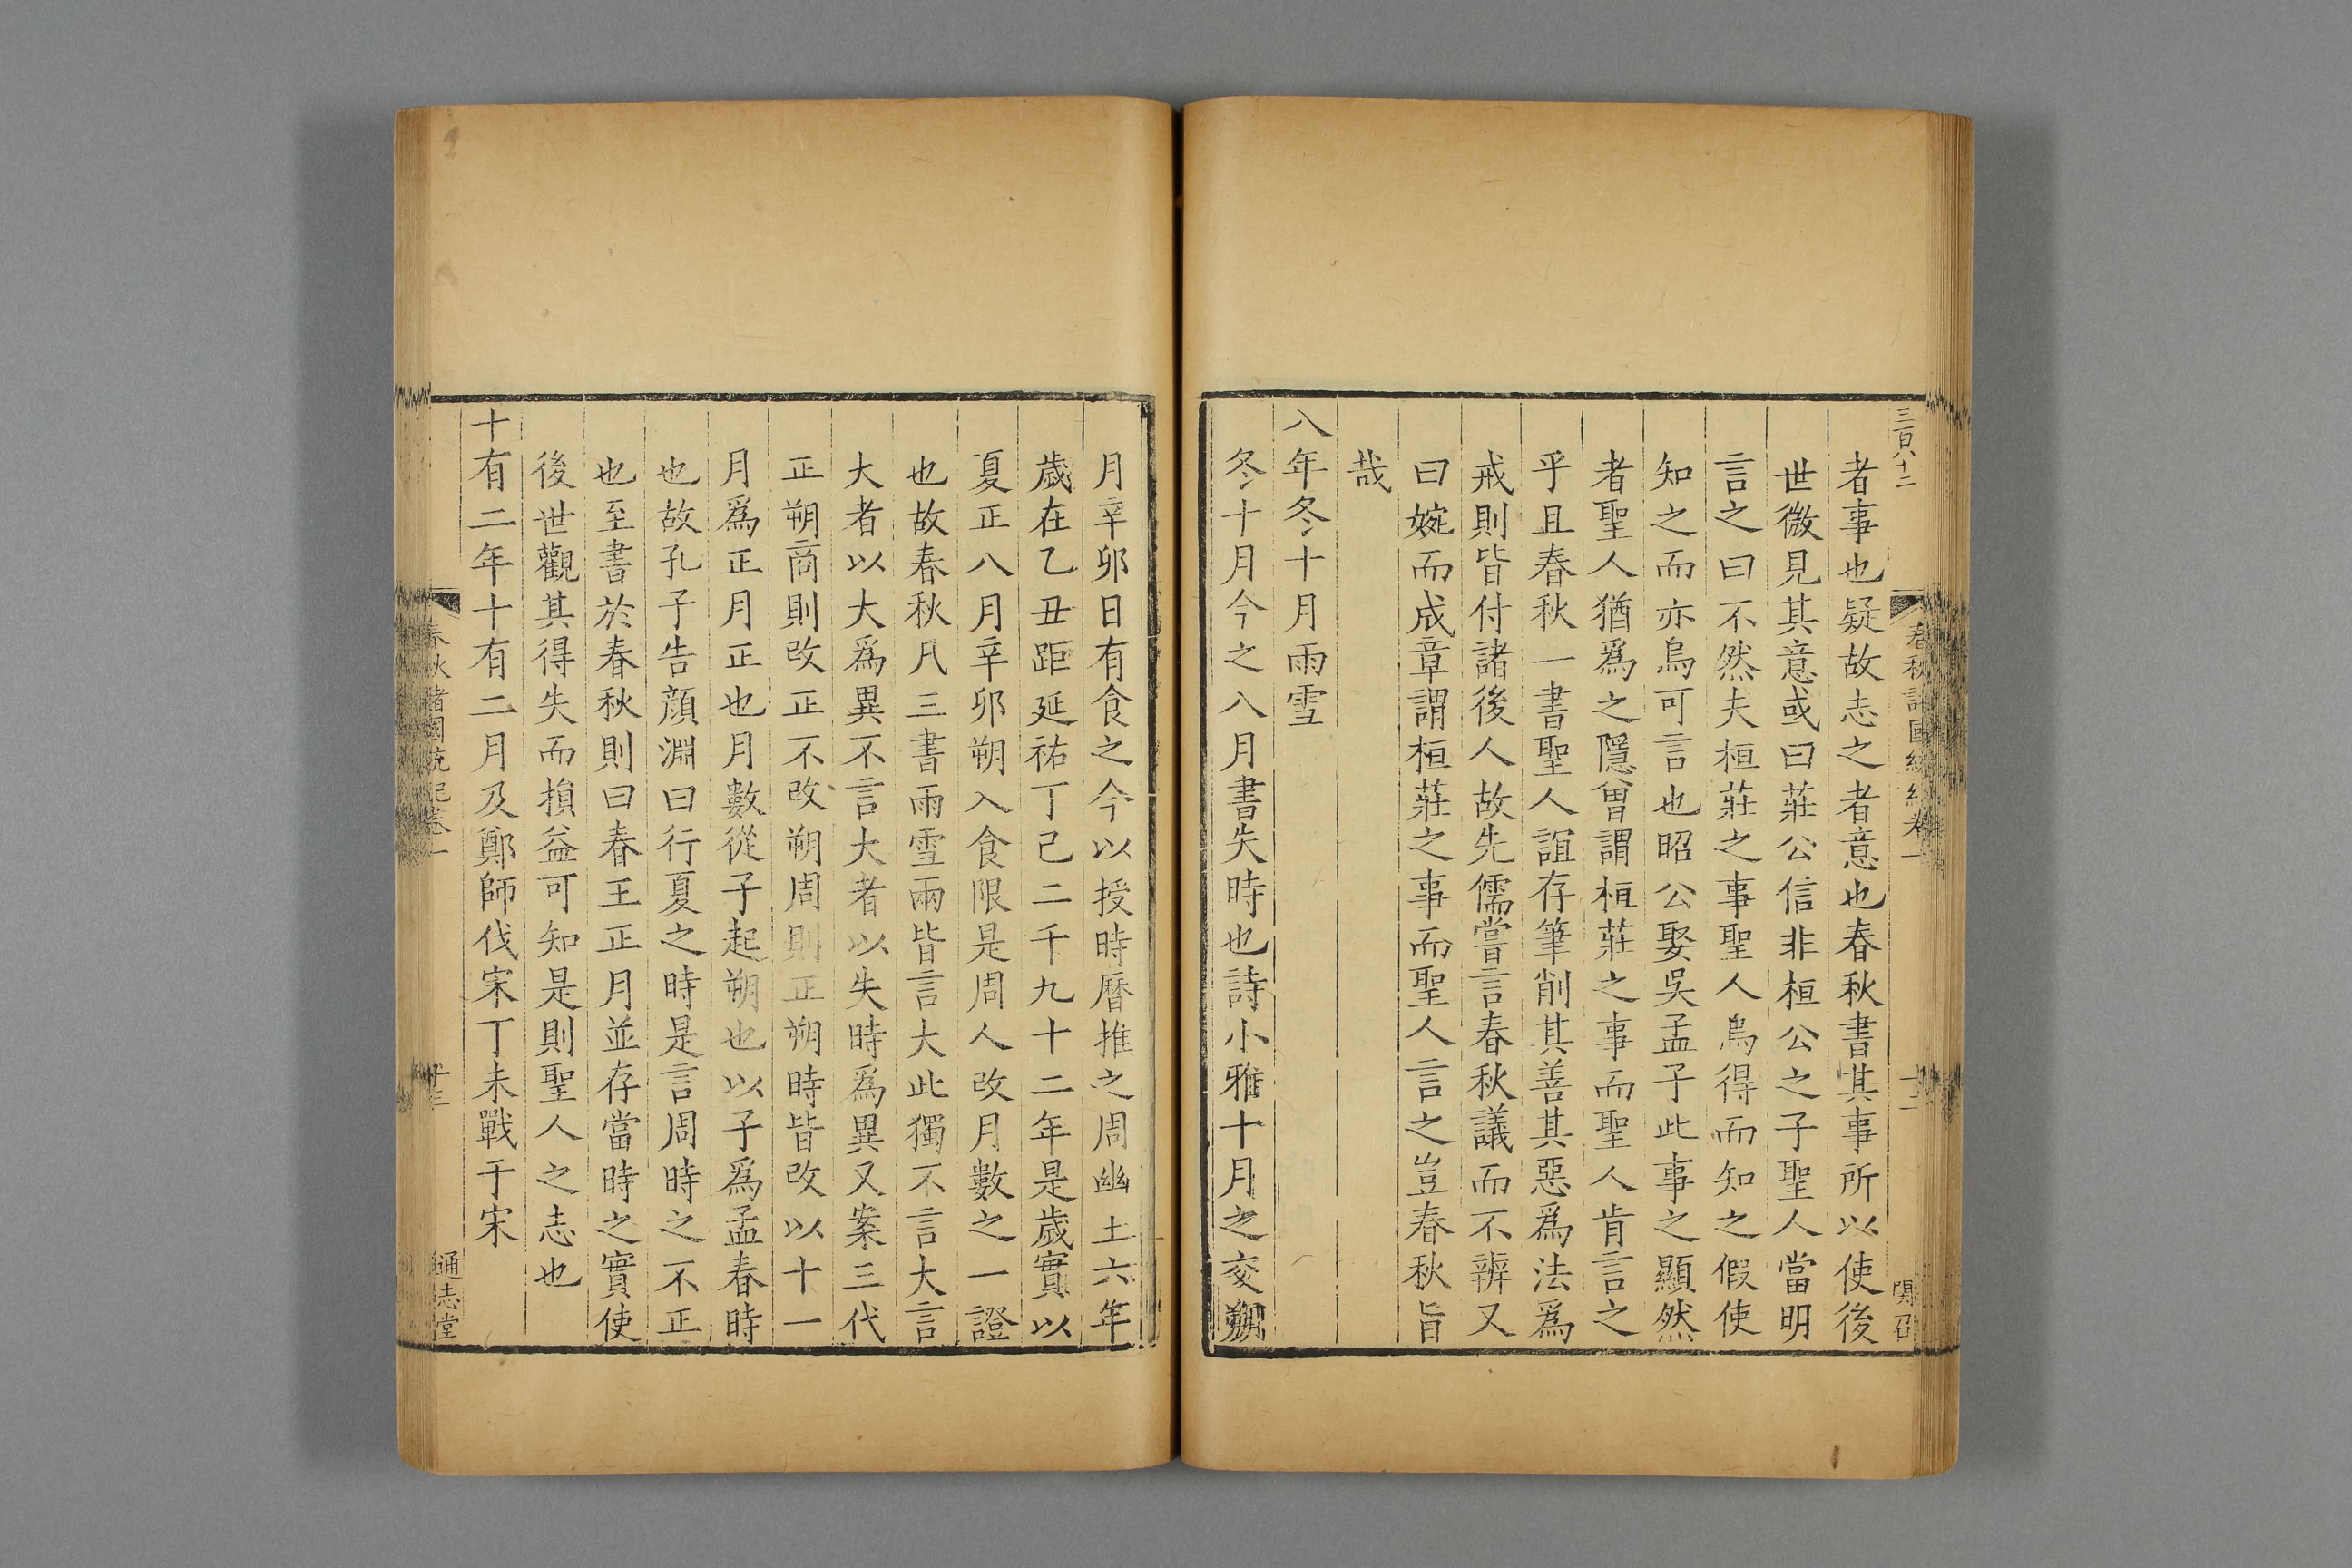 三百八十二
春秋諸國統紀卷一
十二
関召
者事也疑故志之者意也春秋書其事所以使後
世微見其意或曰莊公信非桓公之子聖人當明
言之曰不然夫桓莊之事聖人烏得而知之假使
知之而亦烏可言也昭公娶吳孟子此事之顯然
者聖人猶爲之隱曾謂桓莊之事而聖人肯言之
乎且春秋一書聖人誼存筆削其善其惡爲法爲
戒則皆付諸後人故先儒嘗言春秋議而不辨又
曰婉而成章謂桓莊之事而聖人言之豈春秋旨
哉
八年冬十月雨雪
冬十月今之八月書失時也詩小雅十月之交朔
月辛卯日有食之今以授時曆推之周幽土六年
歲在乙丑距延祐丁巳二千九十二年是歲實以
夏正八月辛卯朔入食限是周人改月數之一證
也故春秋凡三書雨雪兩皆言大此獨不言大言
大者以大爲異不言大者以失時爲異又案三代
正朔商則改正不改朔周則正朔時皆改以十一
月爲正月正也月數從子起朔也以子爲孟春時
也故孔子告顔淵曰行夏之時是言周時之不正
也至書於春秋則曰春王正月並存當時之實使
後世觀其得失而損益可知是則聖人之志也
十有二年十有二月及鄭師伐宋丁未戰于宋
春秋諸國統紀卷一
十三
通志堂